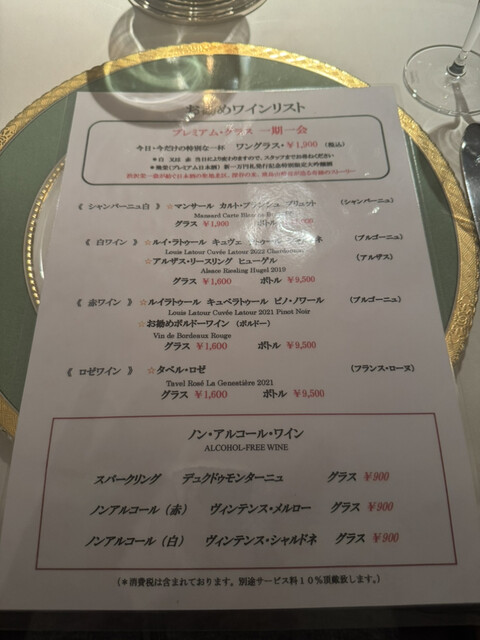 お勧めワインリスト
プレミアム・グラス 一期一会
今日・今だけの特別な一杯 ワングラス・￥1,900（税込）
＊白 又は 赤 当日により変わりますので、スタッフまでお尋ねください
《 シャンパーニュ白 》 ☆マンサール カルト・ブランシュ ブリュット （シャンパーニュ）
Mansard Carte
グラス ￥1,900 ボトル
《 白ワイン 》 ☆ルイ・ラトゥール キュヴェ （ブルゴーニュ）
Louis Latour Cuvée Latour 2022 Chardonnay
☆アルザス・リースリング ヒューゲル （アルザス）
Alsace Riesling Hugel 2019
グラス ￥1,600 ボトル ￥9,500
《 赤ワイン 》 ☆ルイラトゥール キュベラトゥール ピノ・ノワール （ブルゴーニュ）
Louis Latour Cuvée Latour 2021 Pinot Noir
☆お勧めボルドーワイン （ボルドー）
Vin de Bordeaux Rouge
グラス ￥1,600 ボトル ￥9,500
《 ロゼワイン 》 ☆タベル・ロゼ （フランス・ローヌ）
Tavel Rosé La Genestière 2021
グラス ￥1,600 ボトル ￥9,500
ノン・アルコール・ワイン
ALCOHOL-FREE WINE
スパークリング デュクドゥモンターニュ グラス ￥900
ノンアルコール（赤） ヴィンテンス・メルロー グラス ￥900
ノンアルコール（白） ヴィンテンス・シャルドネ グラス ￥900
（＊消費税は含まれております。別途サービス料１０％頂戴致します。）